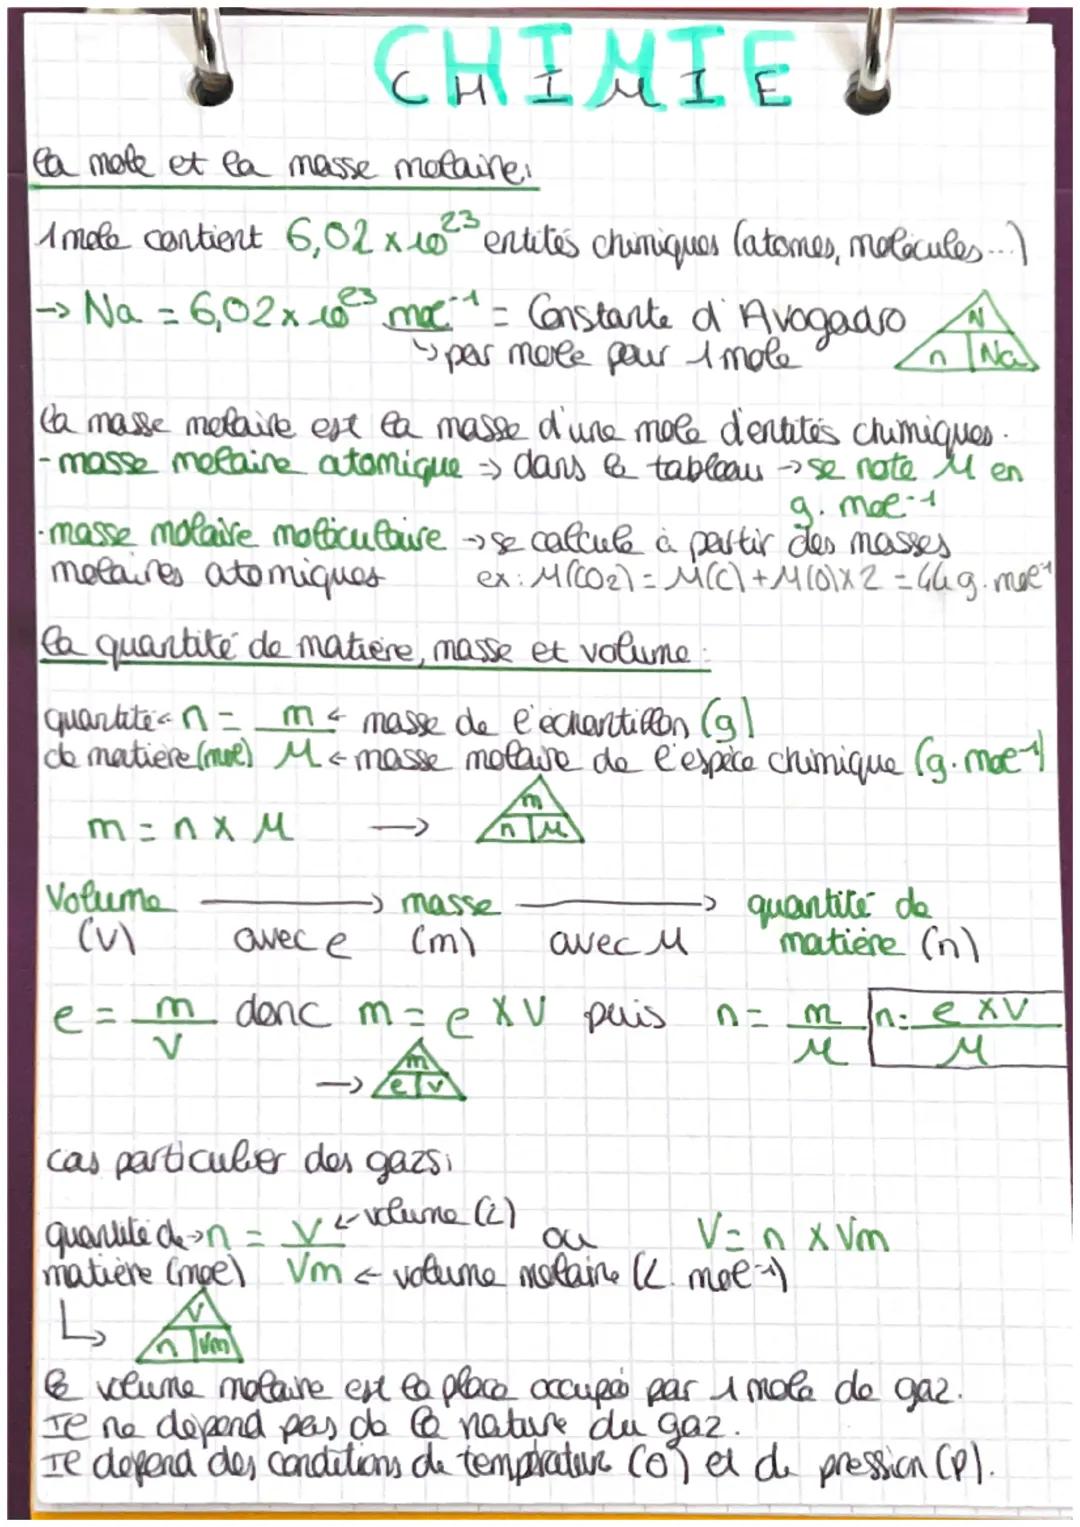 CHIMIE
CHIMIE
la mole et la masse molaire:
1 mole contient 6,02 x 10²³ entités chimiques (atomes, molécules...)
-> Na = 6,02 x 10²³ mol⁻¹ = Constante d'Avogadro
↳ par mole pour 1 mole
N
n | Na
la masse molaire est la masse d'une mole d'entités chimiques.
- masse molaire atomique => dans le tableau -> se note M en
g.mol⁻¹
- masse molaire moléculaire -> se calcule à partir des masses
molaires atomiques ex: M(CO2) = M(C) + M(O) x 2 = 44 g.mol⁻¹
la quantité de matière, masse et volume:
quantité <- n = m <- masse de l'échantillon (g)
de matière (mol) M <- masse molaire de l'espèce chimique (g.mol⁻¹)
m = n x M ->
m
n | M
Volume -> masse -> quantité de
(V) avec e (m) avec M matière (n)
e = m donc m = e x V puis n = m n = e x V
V M M
-> m
e | v
cas particulier des gazs:
quantité de -> n = V <- volume (L) ou V = n x Vm
matière (mol) Vm <- volume molaire (L.mol⁻¹)
↳ V
n | Vm
le volume molaire est la place occupée par 1 mole de gaz.
Il ne dépend pas de la nature du gaz.
Il dépend des conditions de temprature (O) et de pression (P).